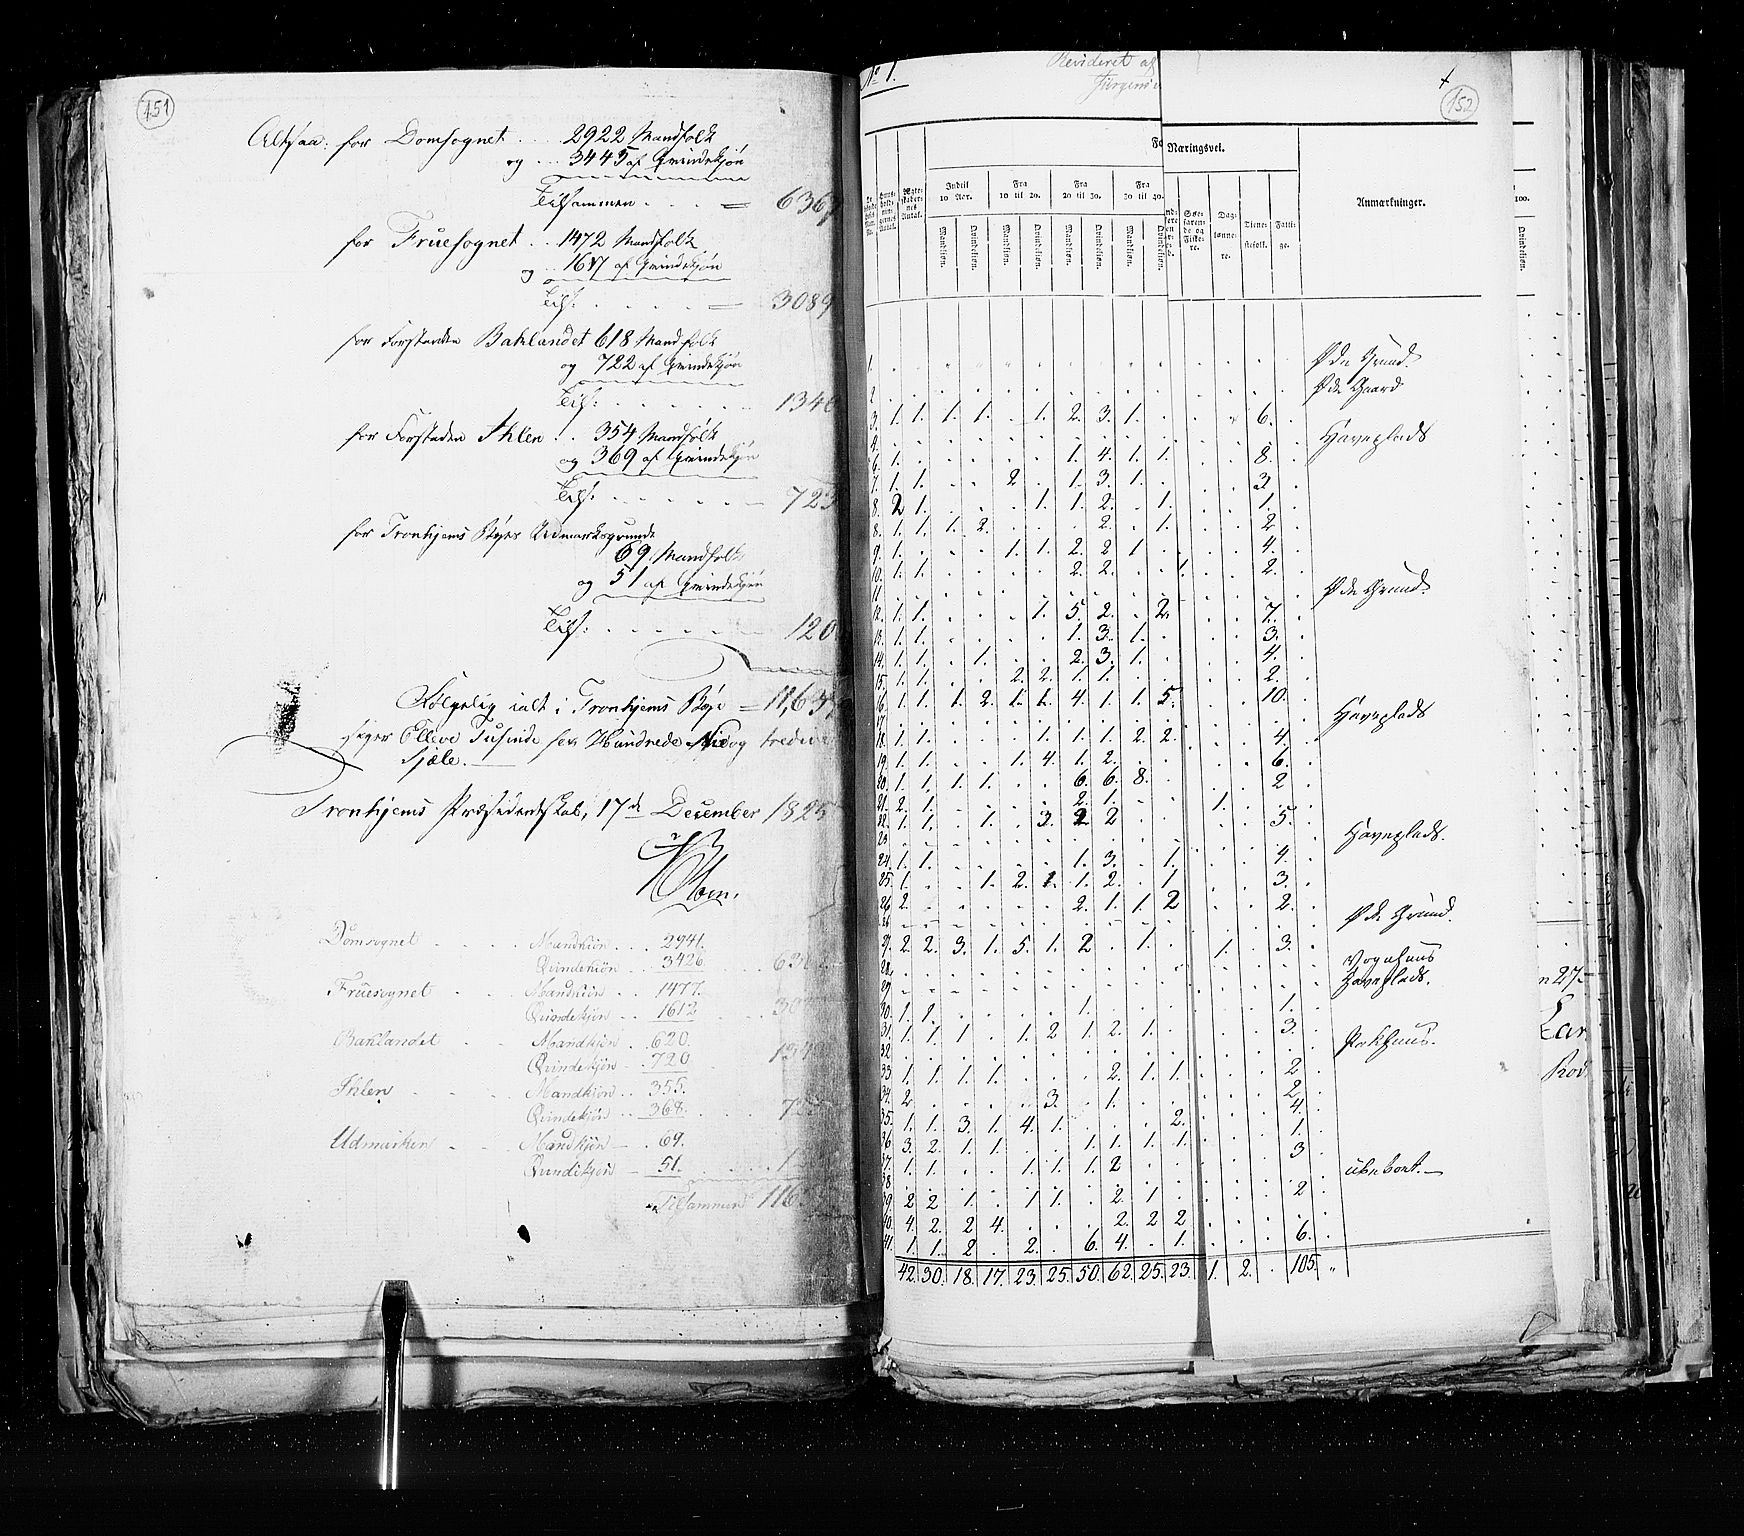 151
Altsaa: for Domsognet . . . 2922 Mandfolk
og . . . 3445 af Qvindekjøn
Tilsammen . . . = 6367
for Fruesognet . . 1472 Mandfolk
og . . 1617 af Qvindekjøn
Tils: . . . . . = 3089
for Forstaden Baklandet 618 Mandfolk
og 722 af Qvindekjøn
Tils: . . . . . . 1340
for Forstaden Ihlen . . 354 Mandfolk
og 369 af Qvindekjøn
Tils: . . . . . — 723
for Tronhjems Byes Udmarksgrunde
69 Mandfolk
og 51 af Qvindekjøn
Tils: . . . . . — 120
Følgelig ialt i Tronhjems Bye = 11,639
siger Elleve Tusinde sex Hundrede Nie og tredive
Sjæle.
Tronhjems Præsidentskab, 17de December 1825
Domsognet . . . Mandkiøn . . . 2941.
Qvindekiøn . . 3426.
Fruesognet . . Mandkiön . . 1477.
Qvindekjøn . . 1612
Baklandet . . Mandkjøn . . 620.
Qvindekjøn . . 720
Ihlen . . Mandkjön . . 355.
Qvindekjön . . 368.
Udmarken . . Mandkjön — 69.
Qvindekjön — 51.
Tilsammen 116
No 1.
Revideret af
152
Næringsvei.
Indtil 10 Aar.
Fra 10 til 20.
Fra 20 til 30.
Fra 30 til 40.
Mandkiøn. Qvindekiøn. Mandkiøn. Qvindekiøn. Mandkiøn. Qvindekiøn. Mandkiøn. Qvindekiøn.
Søefarende og Fiskere.
Dagslønnere.
Tienestefolk.
Fattige.
Anmærkninger.
100.
Qvindekiøn.
1. Øde Grund.
2. Øde Gaard
3. 1. 1. 1. 1. . 1. 2. 3. 1. . . . . 6. .
Haveplads
6. 1. . . . . . 1. 4. 1. 1. . . . 8. .
7. 1. 1. . . 2 . 1. 3. 1. . . . . 3. .
8. 2 1. . . . 1. 1. 2. . 1. . . . 1. .
8. 1. 1. 1. 2. . . . 2. . 1. . . . 2. .
9. 1. . . . 1. 1. 2. 2. 1 . . . . 4. .
10. 1. 1. . . . . 2. 2. . . 1. . . 2. .
11. Øde Grund.
12. 1. 1. . . . 1. 5. 2. . 2. . . . 7. .
13. 1. 1. . . . . 1. 3. 1. . . . . 3. .
14. 1. 1. . 1. . . 2. 3. 1. . . . . 4. .
15. 1. 1. . . 2. 2. 1. 1. . . . . . 2. .
16. 1. 1. 1. 2. 1. 1. 4. 1. 1. 5. . . . 10. .
17. Haveplads
18. 1. 1. . . . 1. 1. 1. 2. 2. . . . 4. .
19. 1. 1. . . 1. 4. 1. 2. . . . . . 6. .
20. 1. 1. 1. 1. . . 6. 6. 8. . . . . 2 .
21. 2. 1. . . . . 2. 1. . . . 1. . . .
22. 1. 1. . 1. . 3. 2 2 . . . . . 5. .
23. Haveplads.
24. 1. 1. . . . . 1. 3. . 1. . . . 4. .
25. 1. . . 1. 2. 1. 1. 2. . 1. . . . 3. .
26. 2. . . . . . 2. 1. 1. 2 . . . 2. .
Øde Grund.
27. 2. 2. 3. 1. 5. 1. 2 . 1. . . 1. . 3. .
28. Vognhuus
29. Haveplads.
30. 1. 1. . . . . 1. . . . . . . 1. .
31. 1. 1. 1. . 1. 2 1. 2. 1. . . . . 3. .
32. Pakhuus.
33. 1. 1. 1. 1. . . . 2. 1. 1. . . . 2 .
34. 2 . . . . 3. . 1. . . . . . 2. .
35. 1. 1. 3. 1. 4. 1. . . . 2. . . . 4. .
36. 3. 2. 1. 1. . . 1. 1. 1. 1. . . . 1. .
37. 1. 1. . . 1. 1. 1. 2 . . . . . 3 .
38. ubeboet.—
39. 2 2 1. . 1. 1. . 2. 1. . . . . 2 .
40. 4. 2. 2 4. . . . 2. 2 2 . . . . .
41. 1. 1. 2 . 2. . 6. 4. . 1. . . . 6. .
42. 30. 18. 17. 23. 25. 50. 62. 25. 23. 1. 2. . 105. "
n 27.